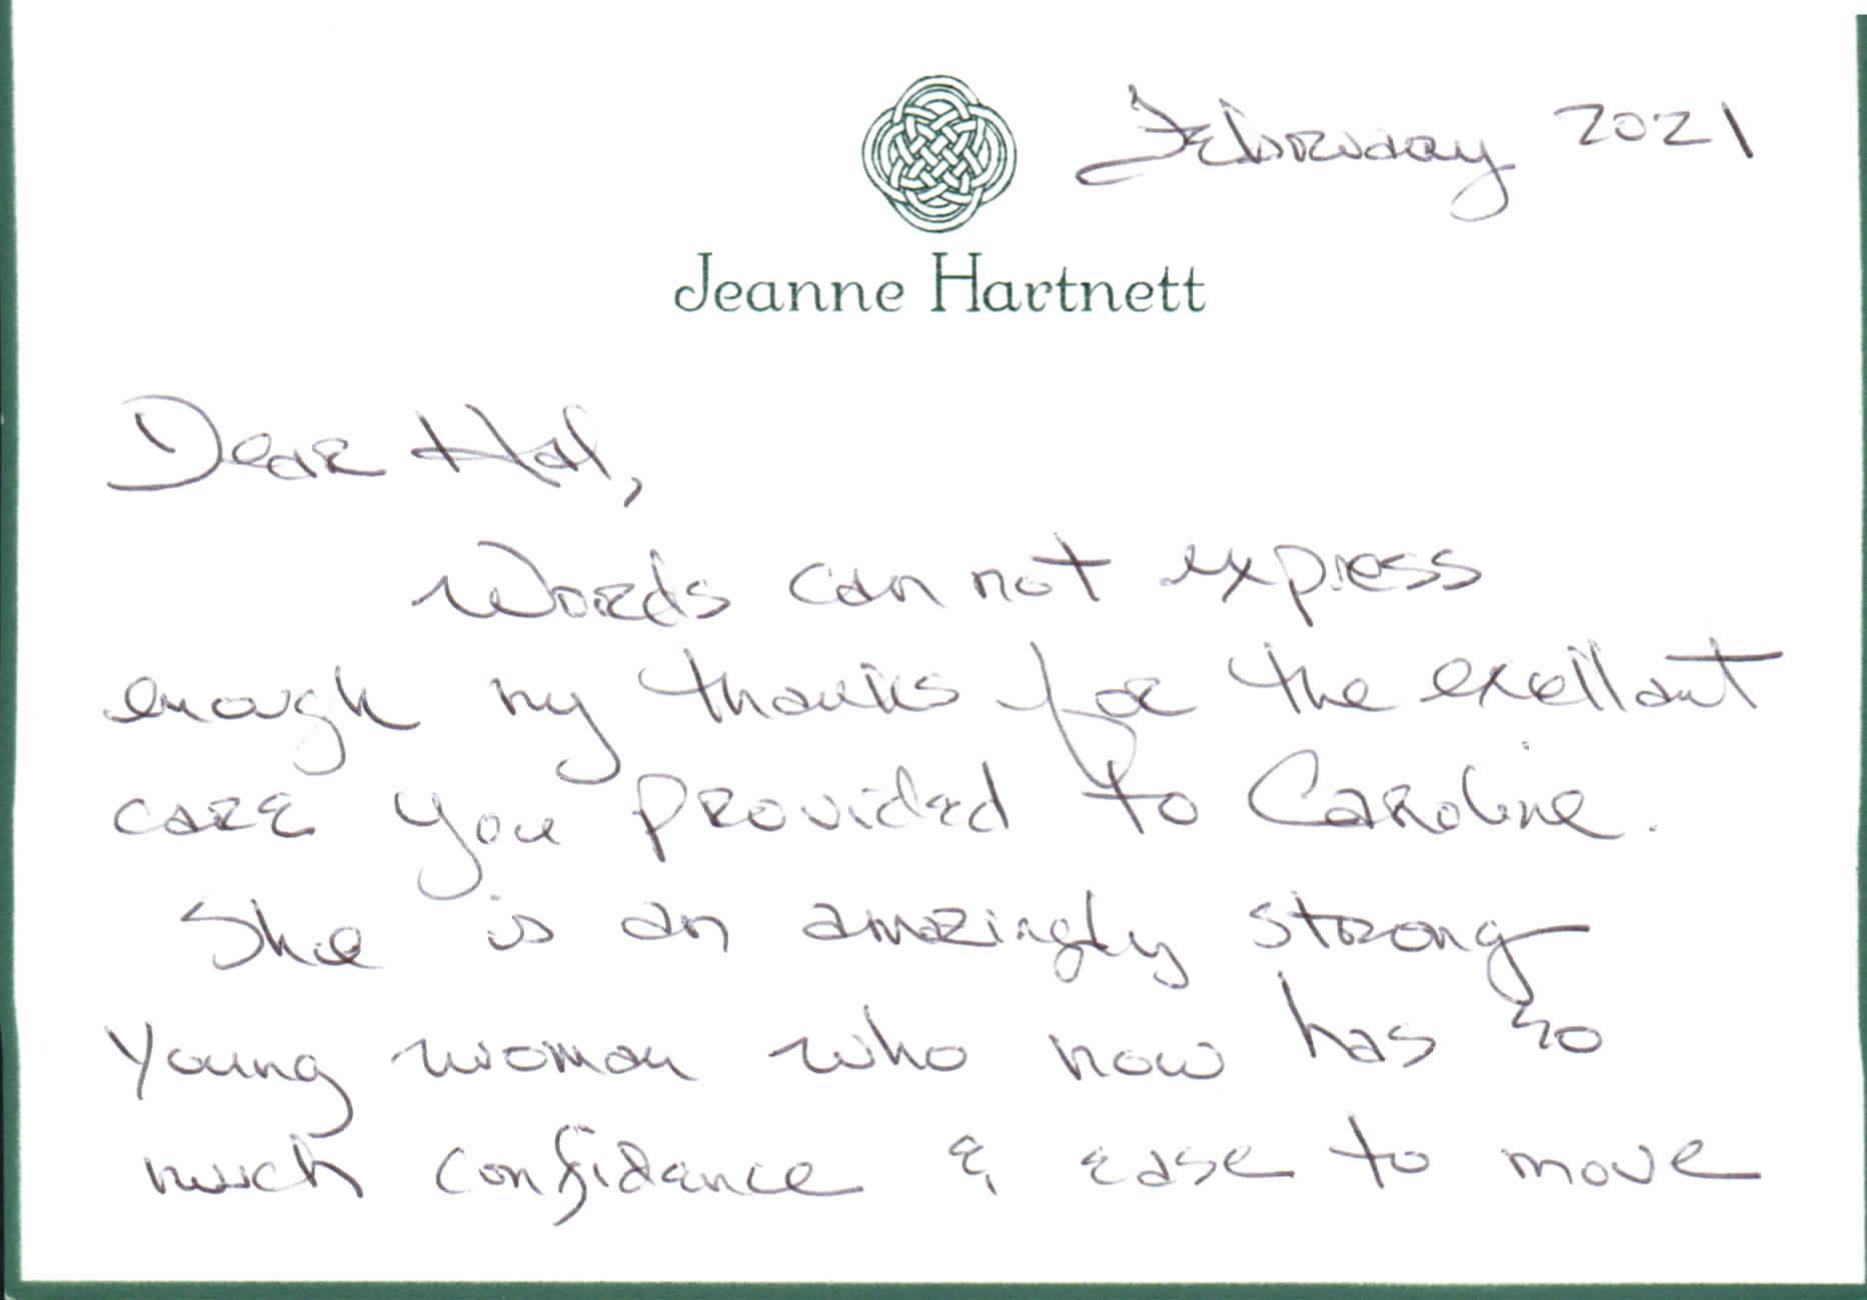 February 2021
Jeanne Hartnett
Dear Hal,
Words can not express
enough my thanks for the exellant
care you provided to Caroline.
She is an amazingly strong
young woman who now has so
much confidance & ease to move